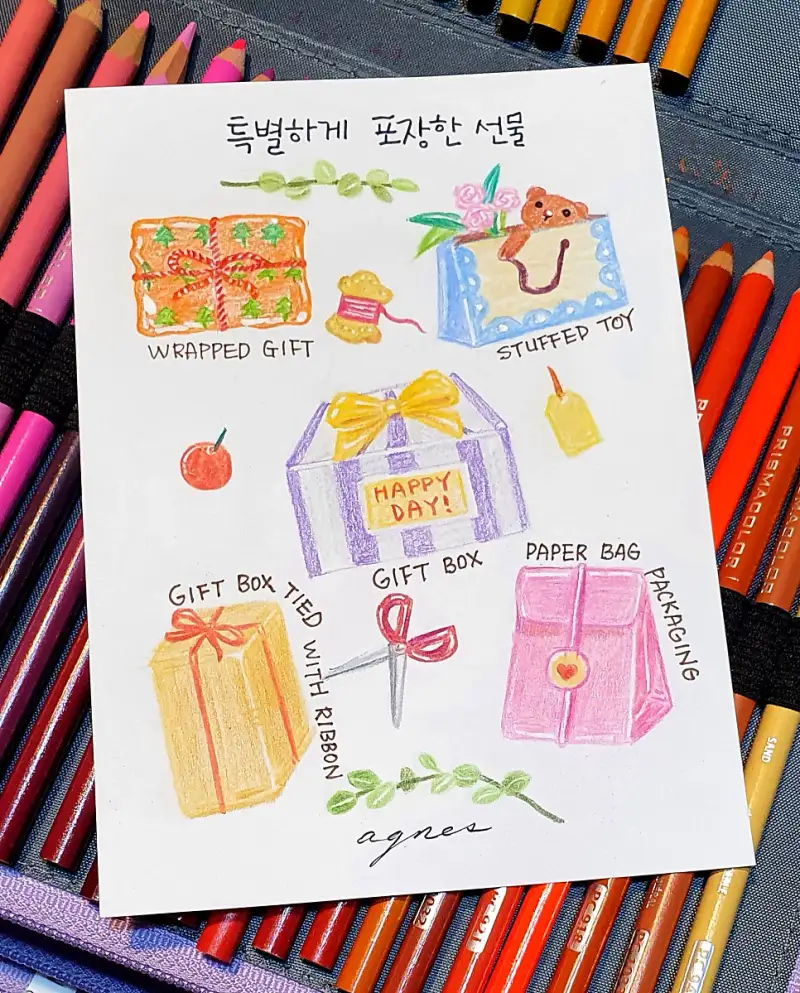 특별하게 포장한 선물
WRAPPED GIFT
STUFFED TOY
HAPPY
DAY!
GIFT BOX
PAPER BAG PACKAGING
GIFT BOX TIED WITH RIBBON
agnes
PRISMACOLOR
PRISMACOLOR
SAND
PC 918